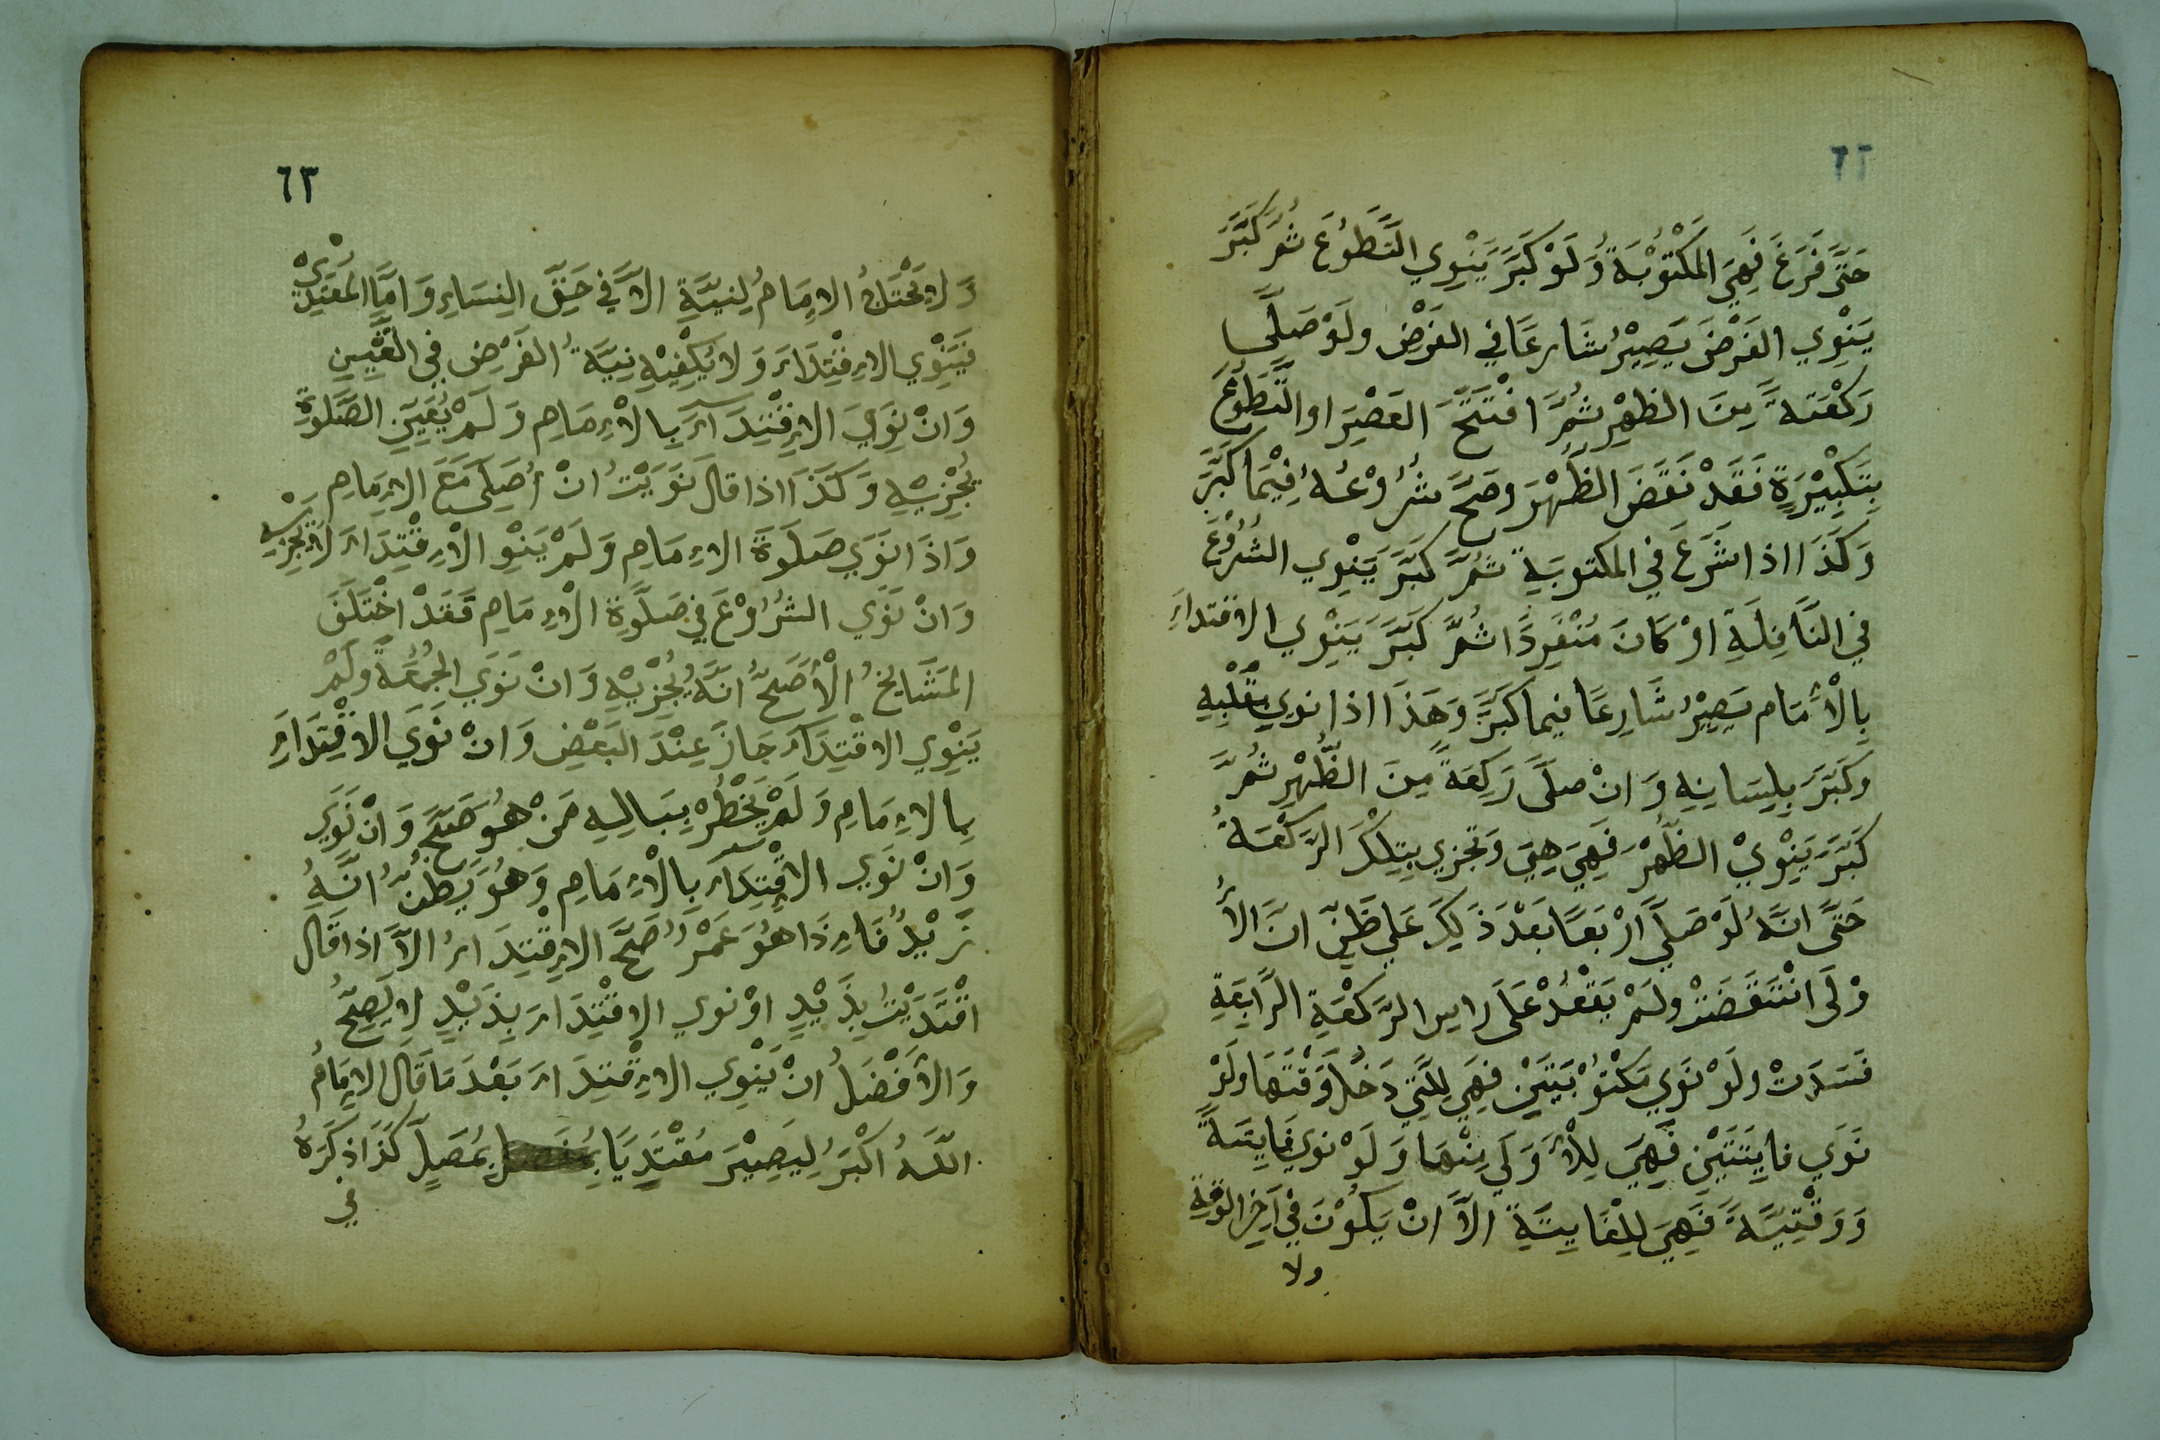 ٦٢
حَتَّى فَرَغَ فَهِيَ المَكْتُوْبَةُ وَلَوْ كَبَّرَ يَنْوِي التَّطَوُّعَ ثُمَّ كَبَّرَ
يَنْوِي الفَرْضَ يَصِيْرُ شَارِعًا في الفَرْضِ ولَوْ صَلَّى
رَكْعَتةً مِنَ الظهْرِ ثُمَّ افْتَتَحَ العَصْرَ او التَّطَوُّعَ
بِتَكْبِيْرَةٍ فَقَدْ نَقَضَ الظُّهْرَ وصَحَّ شُرُوْعُهُ فِيْمَا كَبَّرَ
وَكَذَا اذا شَرَعَ في المكتوبَةِ ثُمَّ كَبَّرَ يَنْوِي الشُرُوْعَ
في النَّافِلَةِ اوْ كَانَ مُنْفَرِدًا ثُمَّ كَبَّرَ يَنْوِي الاقتداءَ
بِالْأمَام يَصِيْرُ شَارِعًا فيما كَبَّرَ وَهَذَا اذا نوى بِقَلْبِهِ
وكَبَّرَ بِلِسَانِهِ وَانْ صلَّى رَكعَةً مِنَ الظُّهْرِ ثُمَّ
كَبَّرَ يَنْوِيْ الظُهْرَ فَهِيَ هِيَ وَتجزي بِتِلْكَ الرَّكْعَةُ
حَتَّى انَّهُ لَوْ صَلَّي ارْبَعًا بَعْدَ ذَلِكَ عَلي ظَنِّ انَّ الأُ
وْلَى انْتَقَضَتْ ولَمْ يَقْعُدْ عَلَى راسِ الرَّكْعَةِ الرَّابِعَةِ
فَسَدَتْ ولَوْ نَوَي مَكْتُوْبَتَيْنِ فهِيَ لِلَّتِي دَخَلَ وَقْتُهَا ولَوْ
نَوَي فايِتَتَيْنِ فَهِيَ لِلْأُوْلَى مِنْهَا وَلَوْ نوي فَايِتَةً
وَوَقْتِيَّةً فَهِيَ لِلْفَايِتَةِ الاَّ انْ يَكُوْنَ فِيْ آخِرِ الوَقْتِيَّةِ
ولا
٦٣
وَلا يَحْتَاجُ الاِمَامُ لِنيَّةِ الاَّ في حَقِّ النِسَاءِ وَامَّا المُقْتَدِيْ
فَيَنْوِي الاِقْتِدَاءَ وَلا يُكْفِيْهِ نِيَّةُ الفَرْضِ في
وَانْ نَوَيَ الاِقْتِدَآءَ بِالْاِمَامِ وَلَمْ يُعَيِّنِ الصَّلوةَ
يُجْزِيْهِ وَكَذَا اذا قالَ نَوَيْتُ انْ أُصَلِّىَ مَعَ الاِمَامِ
وَاذَا نَوَي صَلَوةَ الاِمَامِ وَلَمْ يَنْوِ الْاِقْتِدَاءَ لَا يُجْزِيْهِ
وَانْ نَوَي الشُرُوْعَ في صَلَوةِ الْاِمَامِ فَقَدْ اخْتَلَفَ
المَشَايخُ الْأَصَحُّ انَّهُ يُجْزِيْهِ وَانْ نَوَي الجُمُعَةَ ولَمْ
يَنْوِي الاقْتِدَآءَ جَازَ عِنْدَ البَعْضِ وَانْ نَوَي الاقْتِدَاءَ
بِالاِمَامِ وَلَمْ يَخْطُرْ بِبَالِهِ مَنْ هُوَ صَحَّ وَانْ نَوَي
وَانْ نَوَي الاقْتِدَآءَ بِالْاِمَامِ وَهُوَ يَظُنُّ انَّهُ
زَيْدٌ فَاِذَا هُوَ عَمْرٌ صَحَّ الاِقْتِدَاءُ الاَّ اذا قَال
اقْتَدَيْتُ بِذَيْدٍ اوْ نوي الاِقْتِدَاءَ بِذَيْدٍ لا يَصِحُّ
وَالاَفْضَلُ انْ يَنْوِي الاِقْتِدَاءَ بَعْدَ مَا قَالَ الاِمَامُ
اللَّهُ اكْبَرُ لِيَصِيْرَ مُقْتَدِيًا بِمُصَلٍّ كَذَا ذكَرَهُ
في